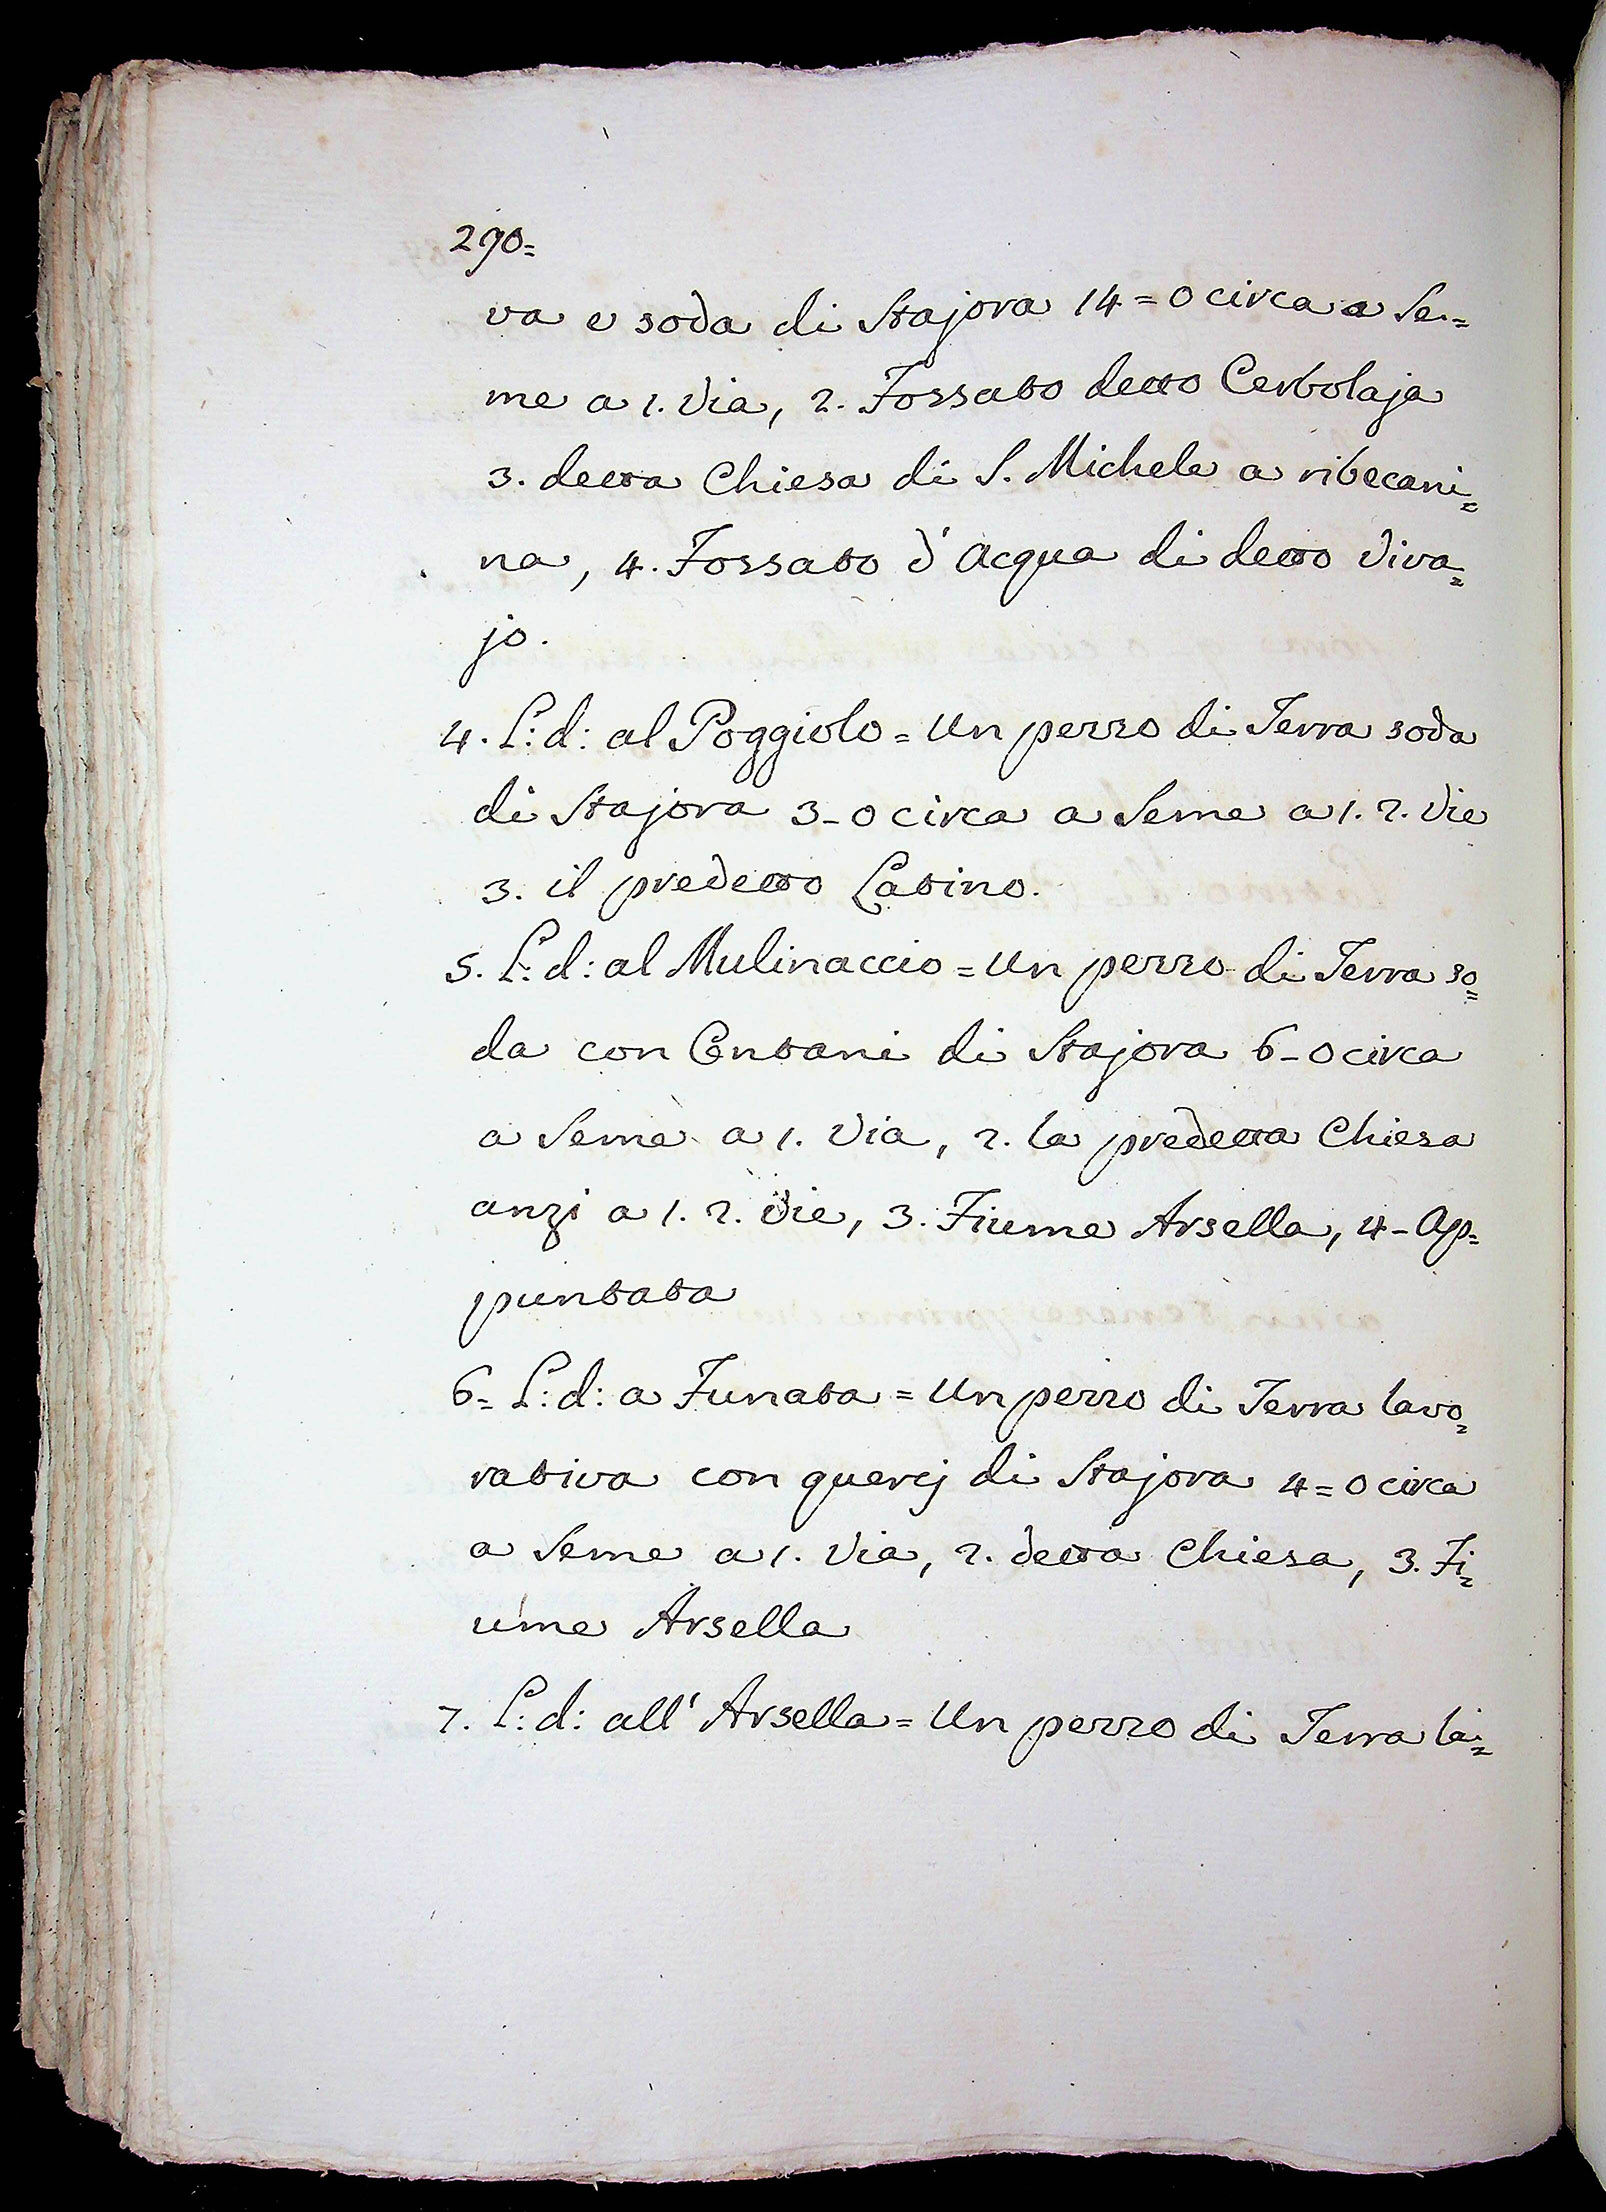 290=
va e soda di Stajora 14=0 circa a Se=
me a 1. Via, 2. Fossato detto Cerbolaja
3. detta Chiesa di S. Michele a ribecani=
na, 4. Fossato d'Acqua di detto Viva=
jo.
4. L: d: al Poggiolo = Un pezzo di Terra soda
di Stajora 3-0 circa a Seme a 1. 2. Vie
3. il predetto Latino.
5. L: d: al Mulinaccio = Un pezzo di Terra so=
da con Ontani di Stajora 6-0 circa
a Seme a 1. Via, 2. la predetta Chiesa
anzi a 1. 2. Vie, 3. Fiume Arsella, 4- Ap=
puntata
6= L: d: a Funata = Un pezzo di Terra lavo=
rativa con quercj di Stajora 4=0 circa
a Seme a 1. Via, 2. detta Chiesa, 3. Fi=
ume Arsella
7. L: d: all' Arsella = Un pezzo di Terra la=